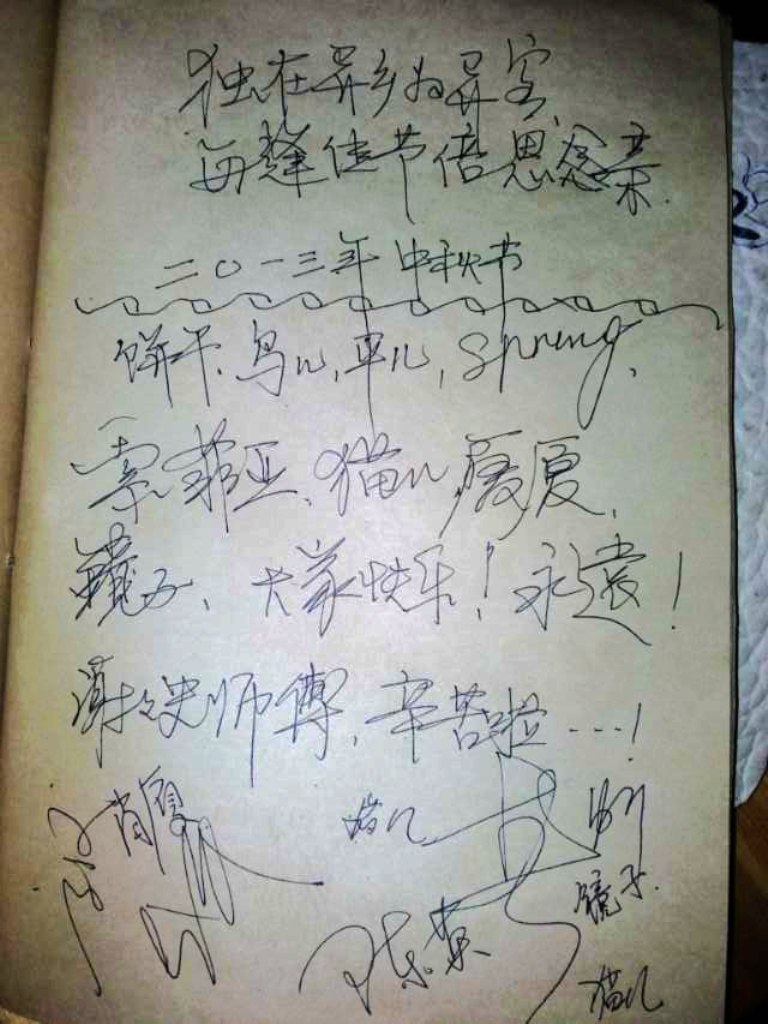 独在异乡为异客
每缝佳节倍思念亲.
二〇一三年中秋节
饼干、鸟儿、平儿, Spring,
索菲亚、猫儿、夏,
大家快乐!永远!
谢谢史师傅,辛苦啦---!
猫儿
陈英
镜子.
猫儿